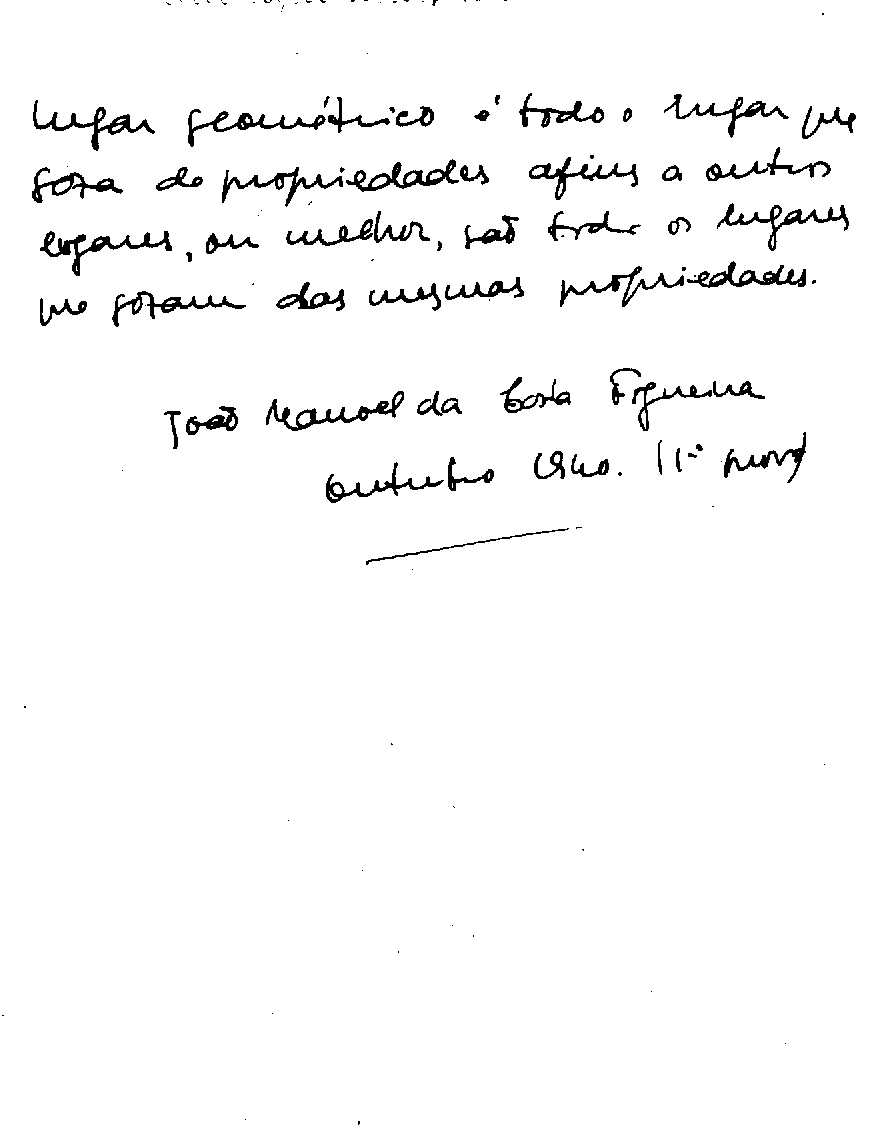 Lugar geométrico é todo o lugar que
goza de propriedades afins a outros
lugares, ou melhor, são todos os lugares
que gozam das mesmas propriedades.
João Manoel da Costa Figueira
Outubro 1940. 11º